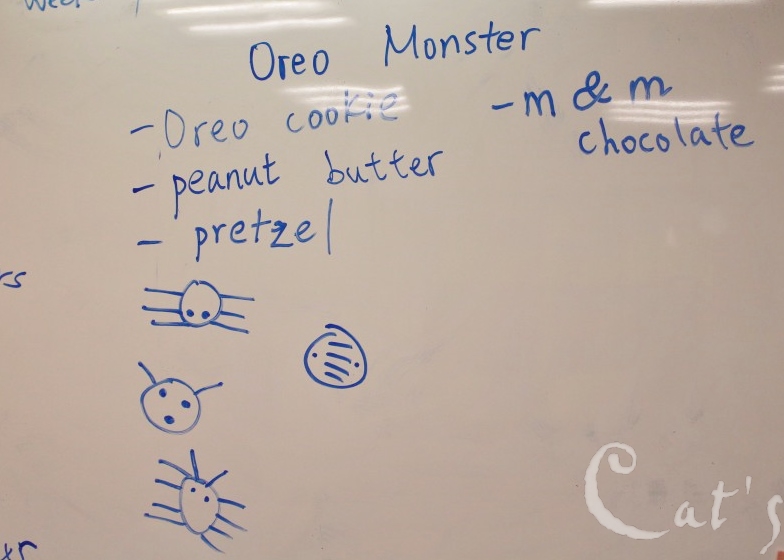 Oreo Monster
- Oreo cookie
- peanut butter
- pretzel
- m & m
chocolate
rs
Cat's